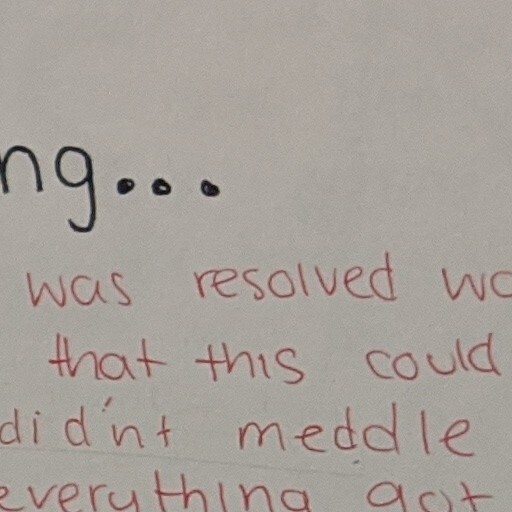 ng...
was resolved wo
that this could
didn't meddle
everything got